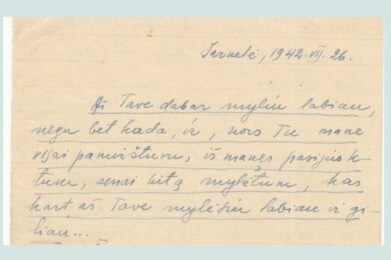 Tarnutė, 1942.VII.26.
Aš Tave dabar myliu labiau,
negu bet kada, ir, nors Tu mane
visai pamirštum, iš manęs pasijuok
tum, senai kitą mylėtum, kas
kart aš Tave mylėsiu labiau ir gi-
liau...